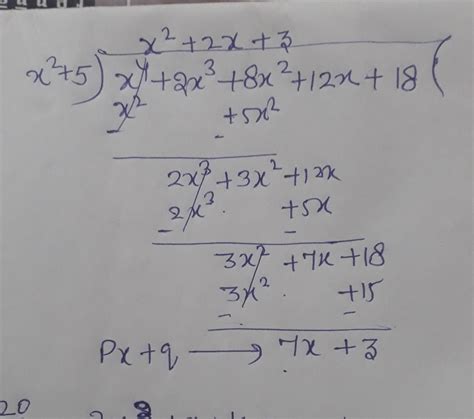 x² + 2x + 3
x²+5) x⁴ + 2x³ + 8x² + 12x + 18 (
x² +5x²
-  -
2x³ + 3x² + 12x
2x³ +5x
-  -
3x² + 7x + 18
3x² +15
-  -
Px + q ⟶ 7x + 3
20